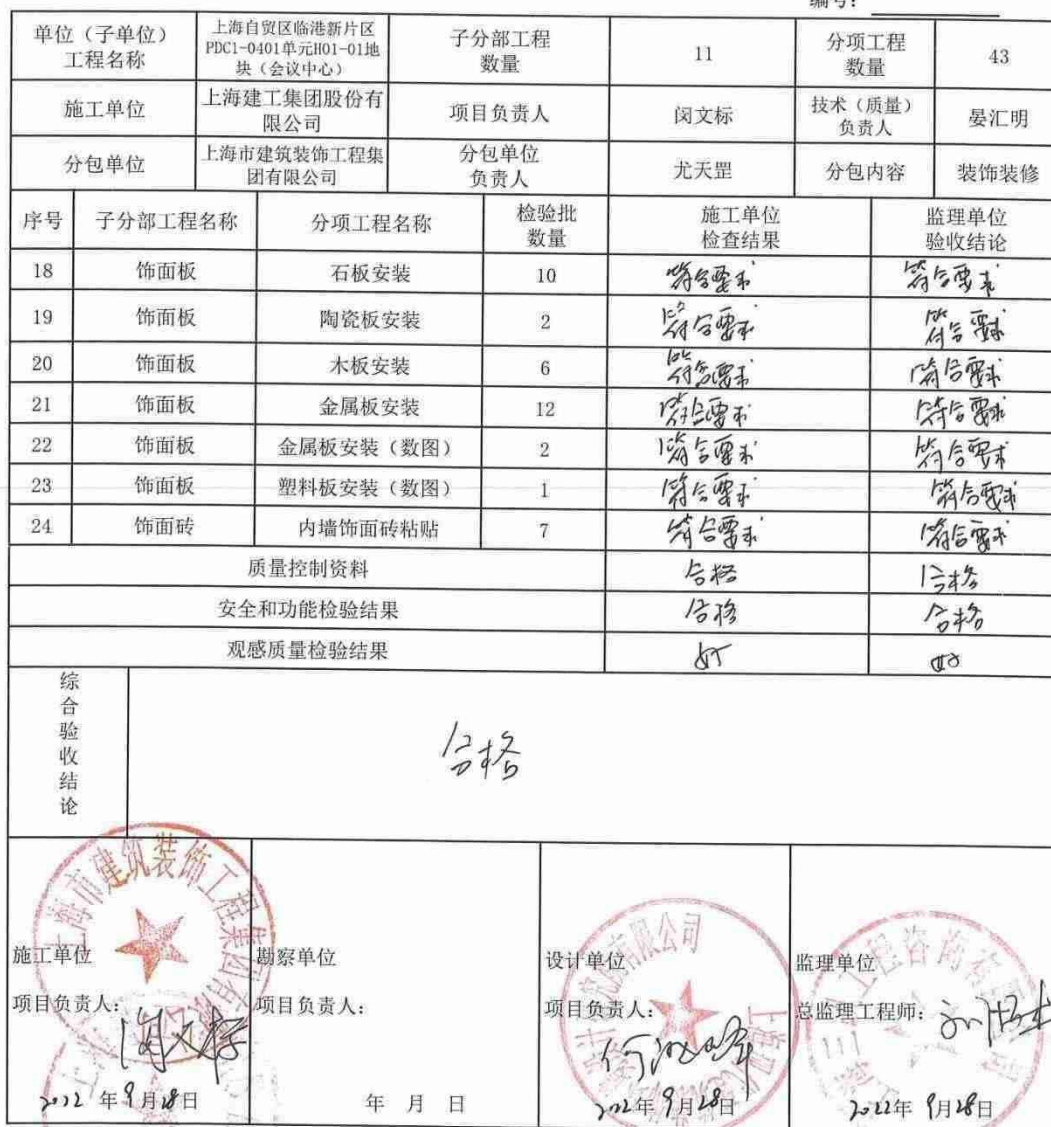 编号：
单位（子单位）
工程名称
上海自贸区临港新片区
PDC1-0401单元H01-01地
块（会议中心）
子分部工程
数量
11
分项工程
数量
43
施工单位
上海建工集团股份有
限公司
项目负责人
闵文标
技术（质量）
负责人
晏汇明
分包单位
上海市建筑装饰工程集
团有限公司
分包单位
负责人
尤天罡
分包内容
装饰装修
序号
子分部工程名称
分项工程名称
检验批
数量
施工单位
检查结果
监理单位
验收结论
18 饰面板 石板安装 10 符合要求 符合要求
19 饰面板 陶瓷板安装 2 符合要求 符合要求
20 饰面板 木板安装 6 符合要求 符合要求
21 饰面板 金属板安装 12 符合要求 符合要求
22 饰面板 金属板安装（数图） 2 符合要求 符合要求
23 饰面板 塑料板安装（数图） 1 符合要求 符合要求
24 饰面砖 内墙饰面砖粘贴 7 符合要求 符合要求
质量控制资料 合格 合格
安全和功能检验结果 合格 合格
观感质量检验结果 好 好
综合验收结论
合格
上海市建筑装饰工程集团有限
施工单位
项目负责人：
2022 年 9月28日
勘察单位
项目负责人：
年 月 日
设计单位
项目负责人：
2022年 9月28日
监理单位
工程咨询
总监理工程师：
2022年 9月28日